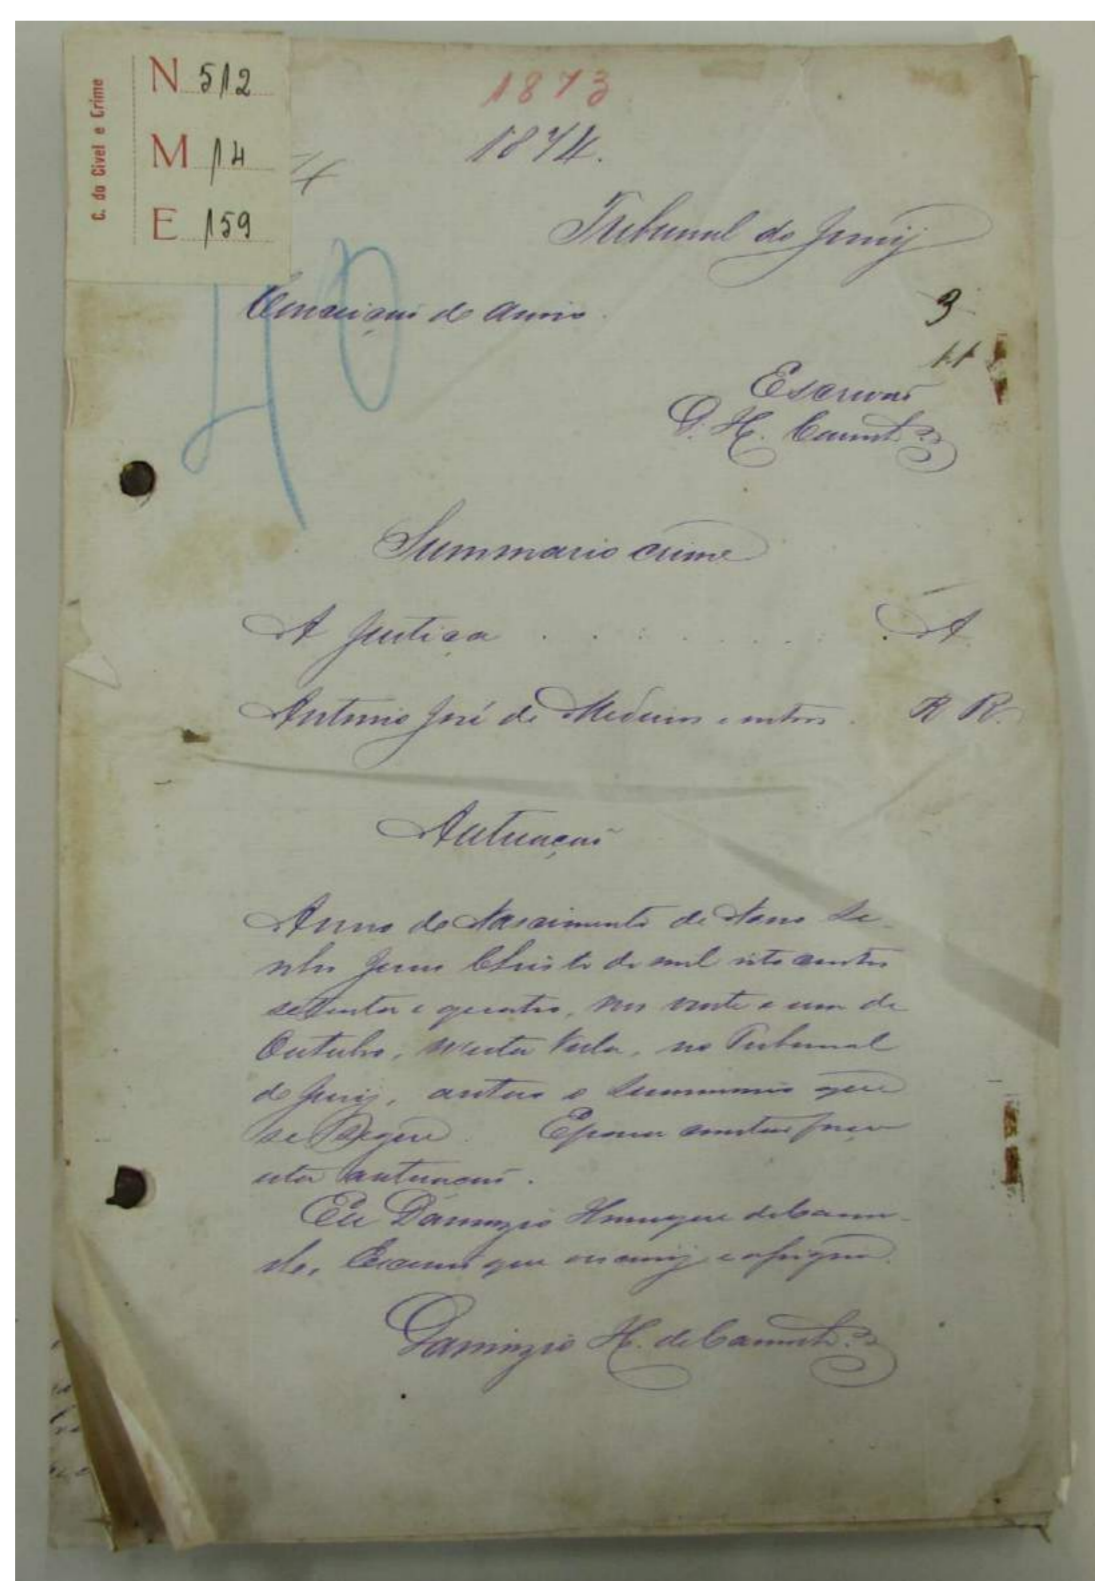 C. do Civel e Crime
N 512
M 14
E 159
1873
1874.
Tribunal do Jury
Conceiçaõ do Arroio.
3
11
Escrivaõ
D. H.
40
Summario crime
A Justiça A.
Antonio José de Medeiros e outros. R R.
Autuaçaõ
Anno do Nascimento de Nosso Se-
nhor Jesus Christo de mil oito centos
setenta e quatro, aos vinte e um de
Outubro, nesta Villa, no Tribunal
do Jury, autuo o Summario que
se segue. E para constar faço
esta autuaçaõ.
Eu
Escrivaõ que escrevy e assigno.
H. de